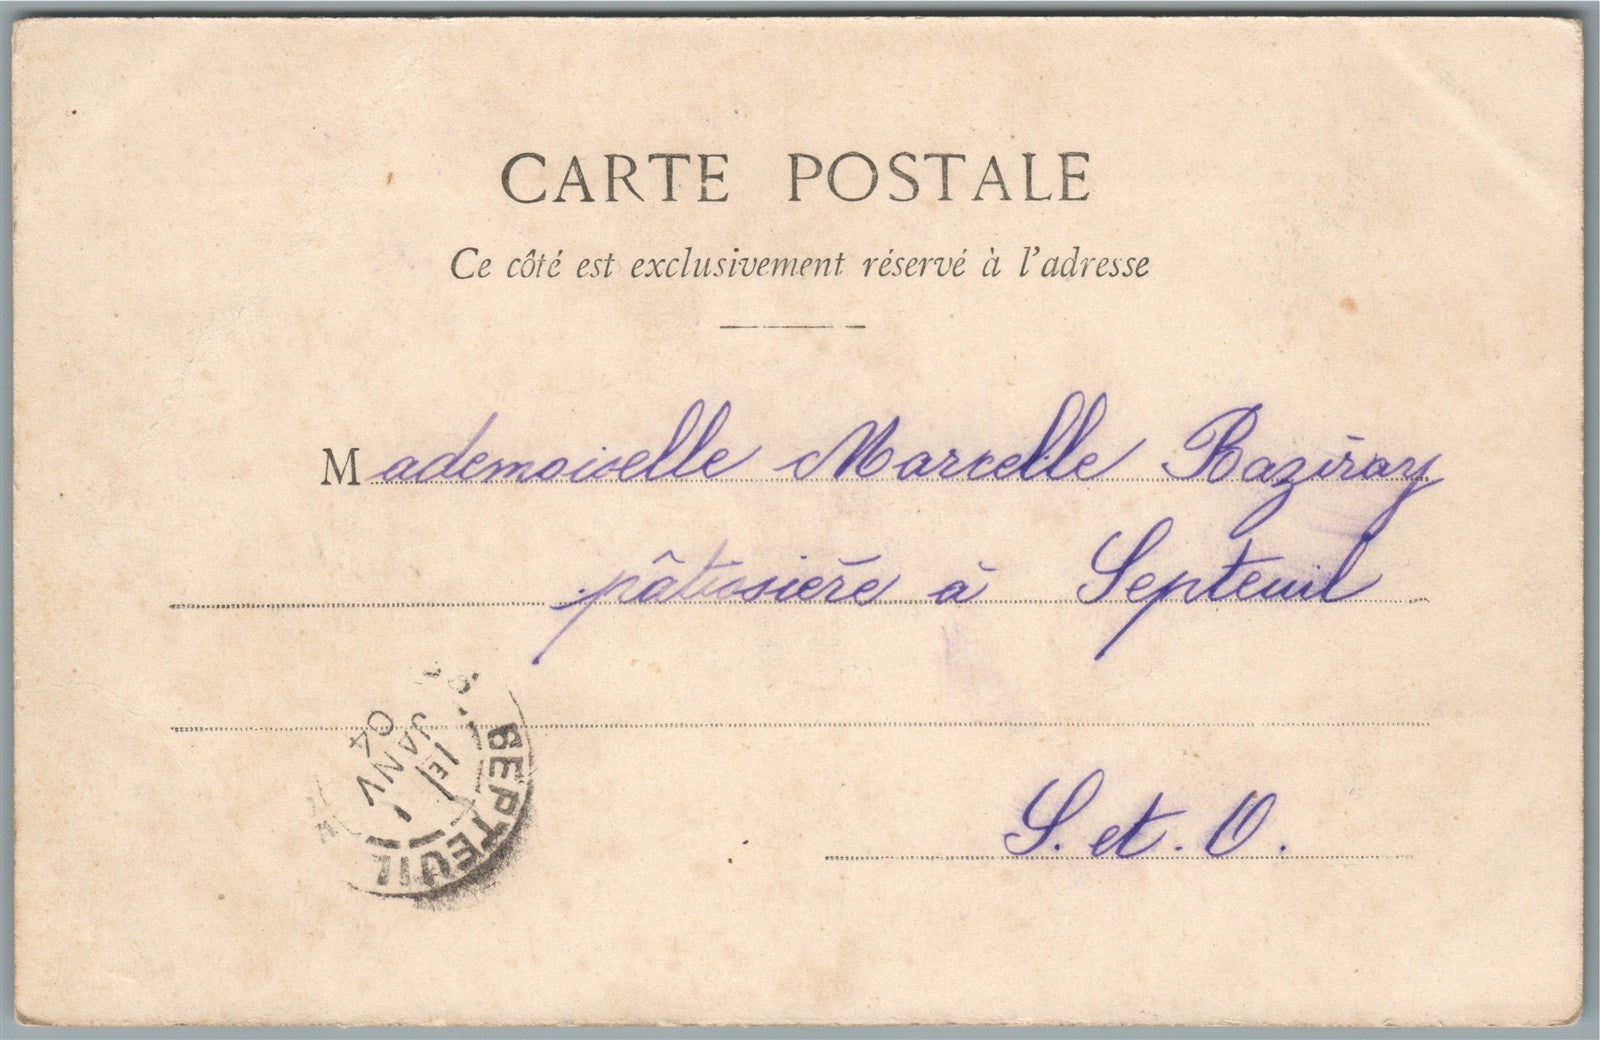 CARTE POSTALE
Ce côté est exclusivement réservé à l'adresse
Mademoiselle Marcelle Baziray
pâtissière à Septeuil
S. et. O.
SEPTEUIL
1E
JANV
04